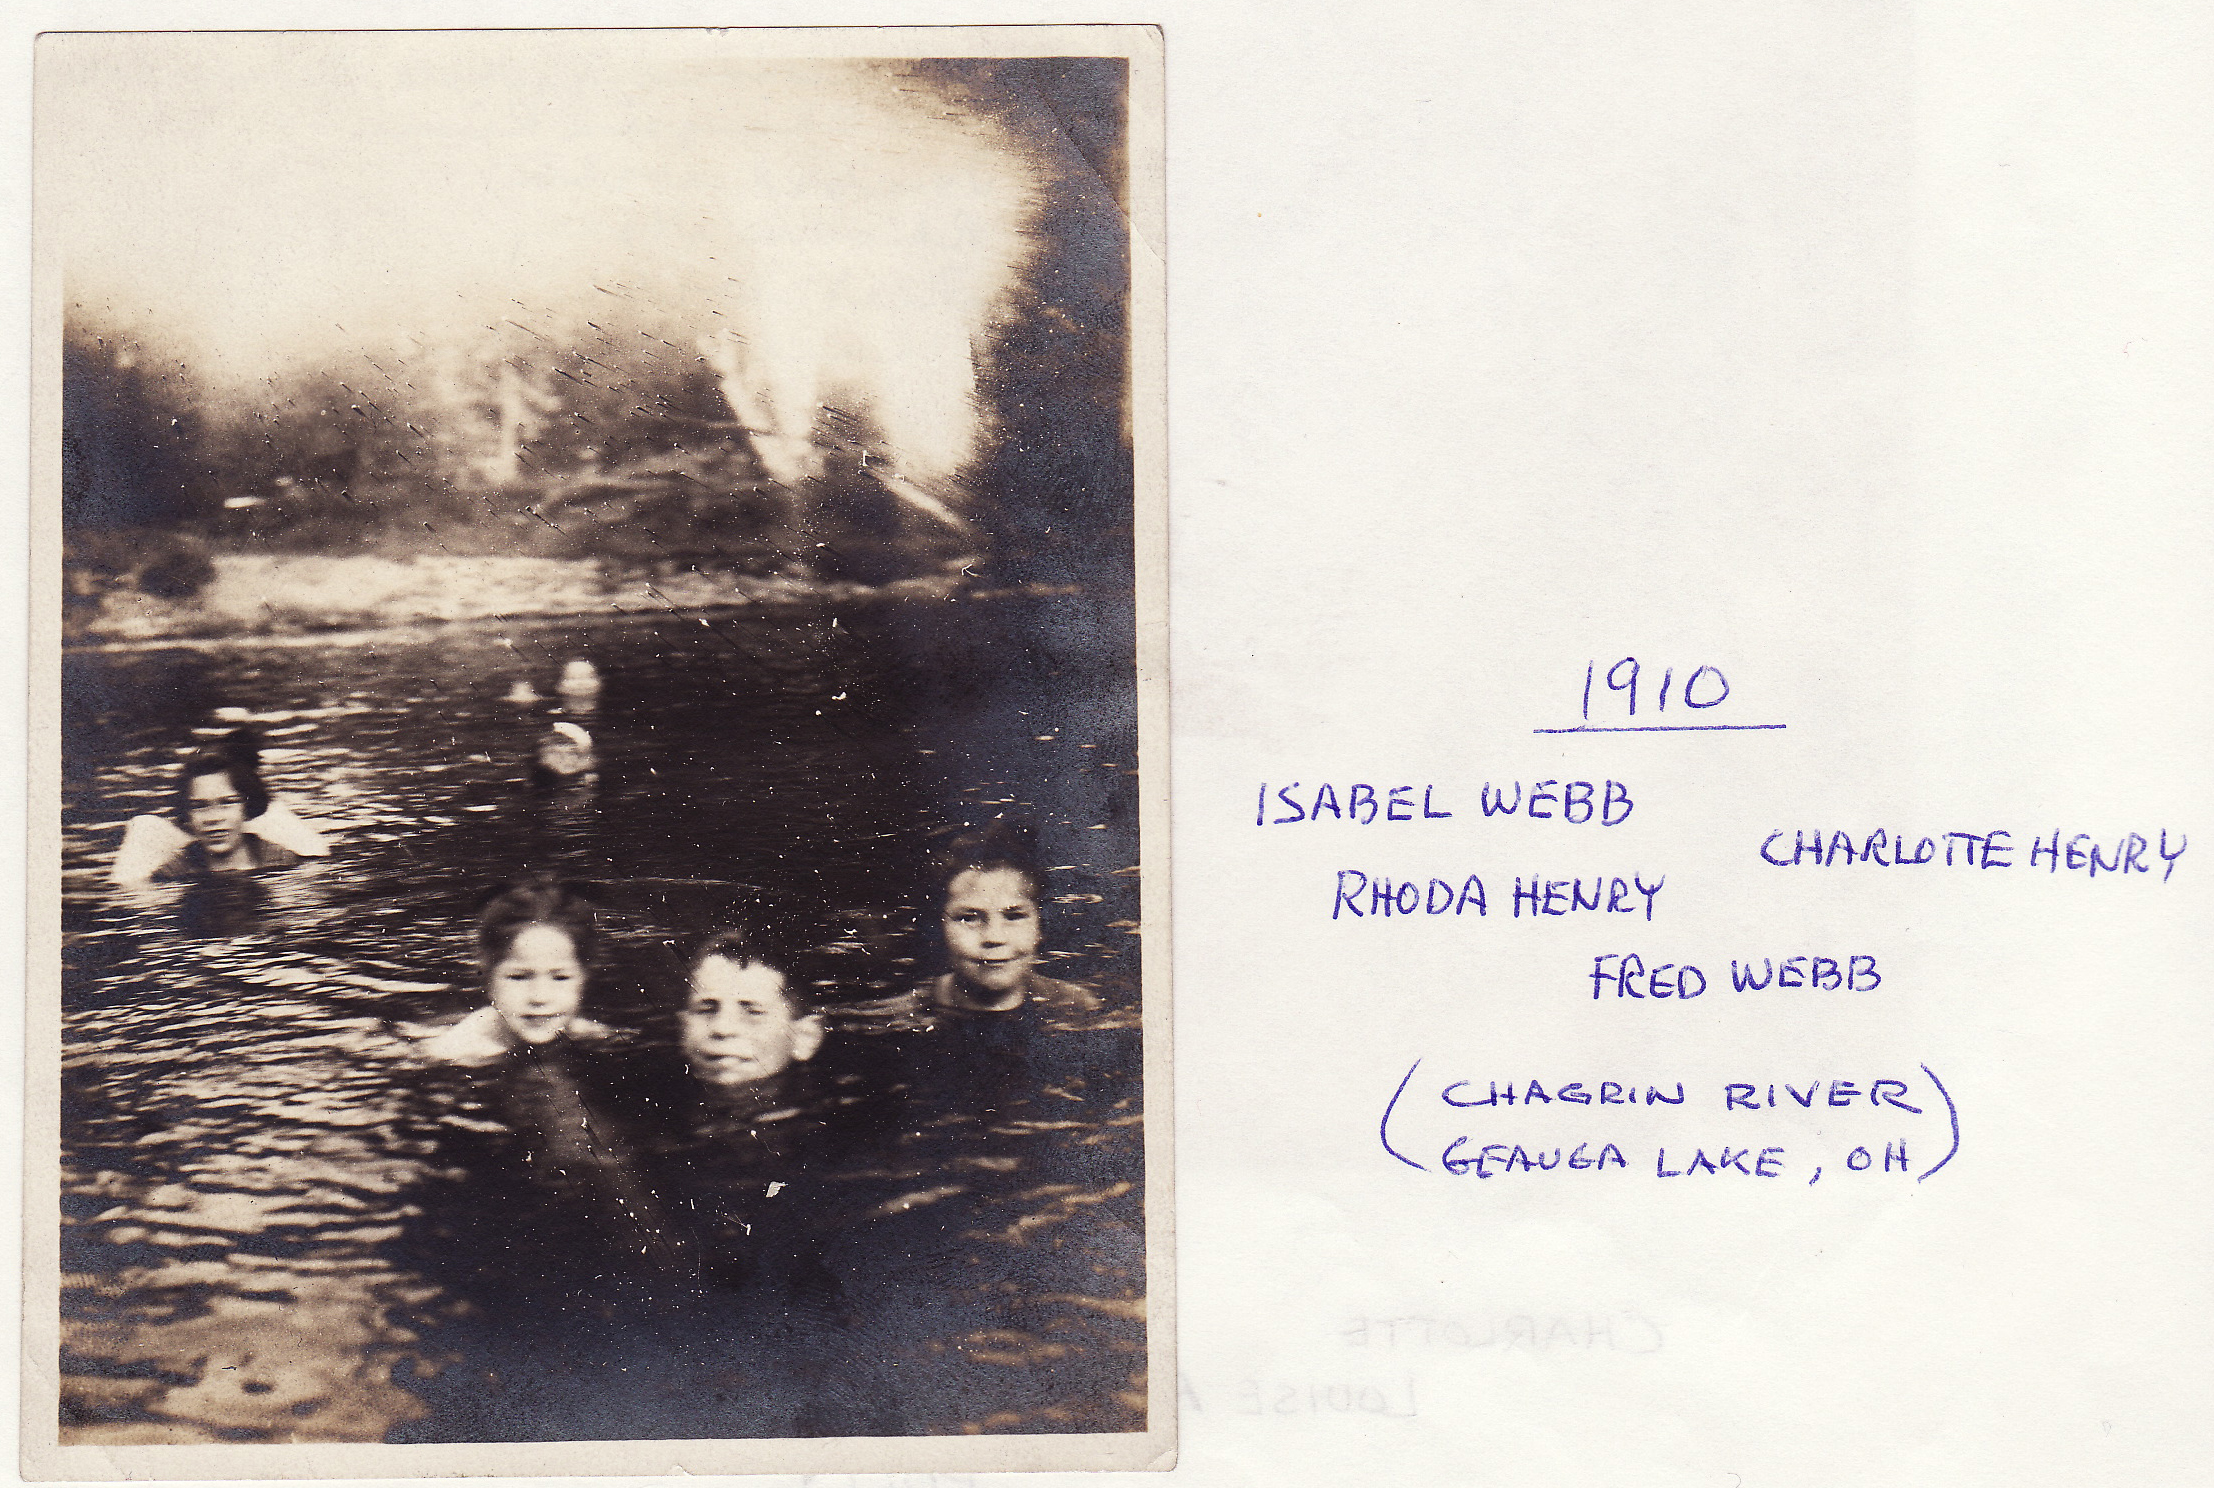 1910
ISABEL WEBB
CHARLOTTE HENRY
RHODA HENRY
FRED WEBB
(CHAGRIN RIVER
GEAUGA LAKE, OH)
CHARLOTTE
LOUISE